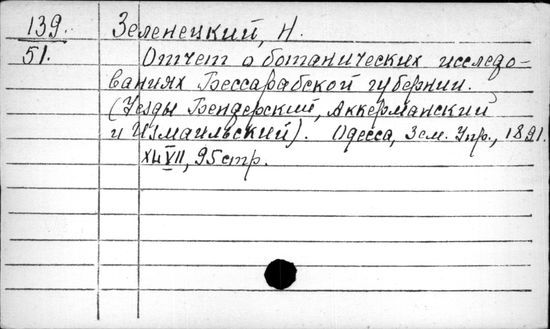 139. Зеленецкий, Н.
51. Отчет о ботанических исследо-
ваниях Бессарабской губернии.
(Уезды Бендерский, Аккерманский
и Измаильский). Одесса, Зем. Упр., 1891.
XLVII, 95 стр.